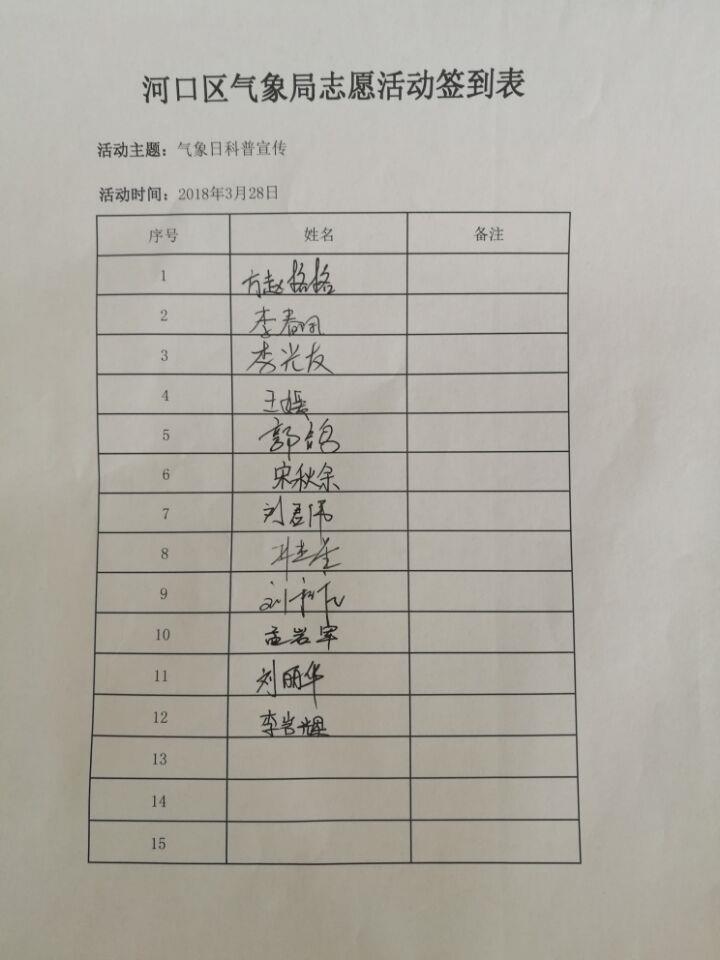 河口区气象局志愿活动签到表
活动主题：气象日科普宣传
活动时间：2018年3月28日
序号 姓名 备注
1 方赵格格
2 李春
3 李光友
4 王媛
5 郭鸽
6 宋秋余
7 刘君伟
8
9 刘
10 孟岩军
11 刘丽华
12 李岩
13
14
15